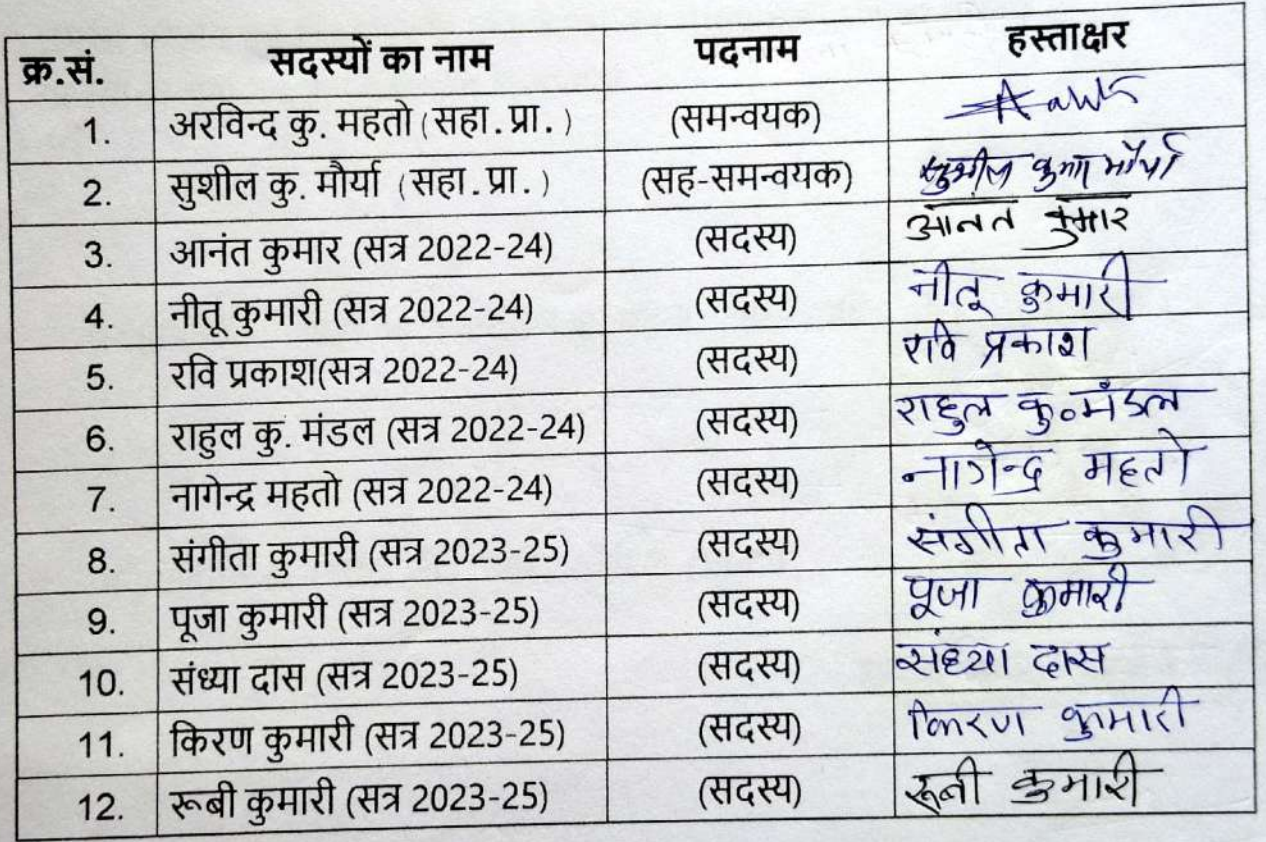 क्र.सं. सदस्यों का नाम पदनाम हस्ताक्षर
1. अरविन्द कु. महतो (सहा. प्रा. ) (समन्वयक)
2. सुशील कु. मौर्या (सहा. प्रा. ) (सह-समन्वयक) सुशील कुमार मौर्या
3. आनंत कुमार (सत्र 2022-24) (सदस्य) आनत कुमार
4. नीतू कुमारी (सत्र 2022-24) (सदस्य) नीतू कुमारी
5. रवि प्रकाश(सत्र 2022-24) (सदस्य) रवि प्रकाश
6. राहुल कु. मंडल (सत्र 2022-24) (सदस्य) राहुल कु॰ मंडल
7. नागेन्द्र महतो (सत्र 2022-24) (सदस्य) नागेन्द्र महतो
8. संगीता कुमारी (सत्र 2023-25) (सदस्य) संगीता कुमारी
9. पूजा कुमारी (सत्र 2023-25) (सदस्य) पूजा कुमारी
10. संध्या दास (सत्र 2023-25) (सदस्य) संध्या दास
11. किरण कुमारी (सत्र 2023-25) (सदस्य) किरण कुमारी
12. रूबी कुमारी (सत्र 2023-25) (सदस्य) रूबी कुमारी